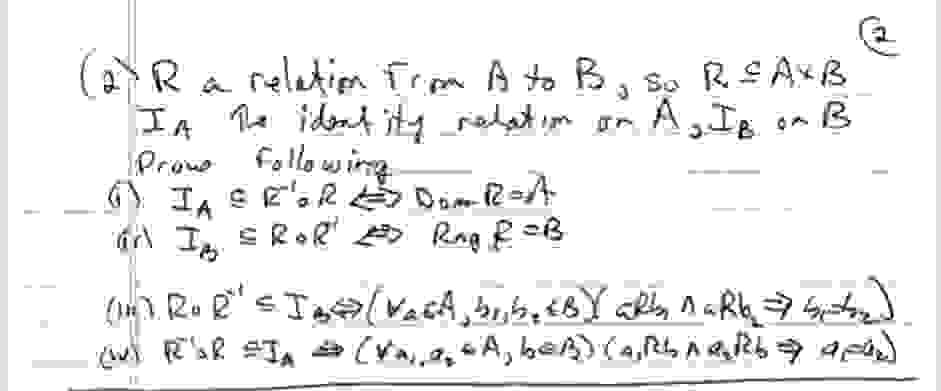 (2
(2) R a relation from A to B, so R ⊆ A×B
I_A the identity relation on A, I_B on B
Prove following
(i) I_A ⊆ R⁻¹∘R ⇔ Dom R = A
(ii) I_B ⊆ R∘R⁻¹ ⇔ Rng R = B
(iii) R∘R⁻¹ ⊆ I_B ⇔ (∀a∈A, b₁,b₂∈B)(aRb₁ ∧ aRb₂ ⇒ b₁=b₂)
(iv) R⁻¹∘R ⊆ I_A ⇔ (∀a₁,a₂∈A, b∈B)(a₁Rb ∧ a₂Rb ⇒ a₁=a₂)